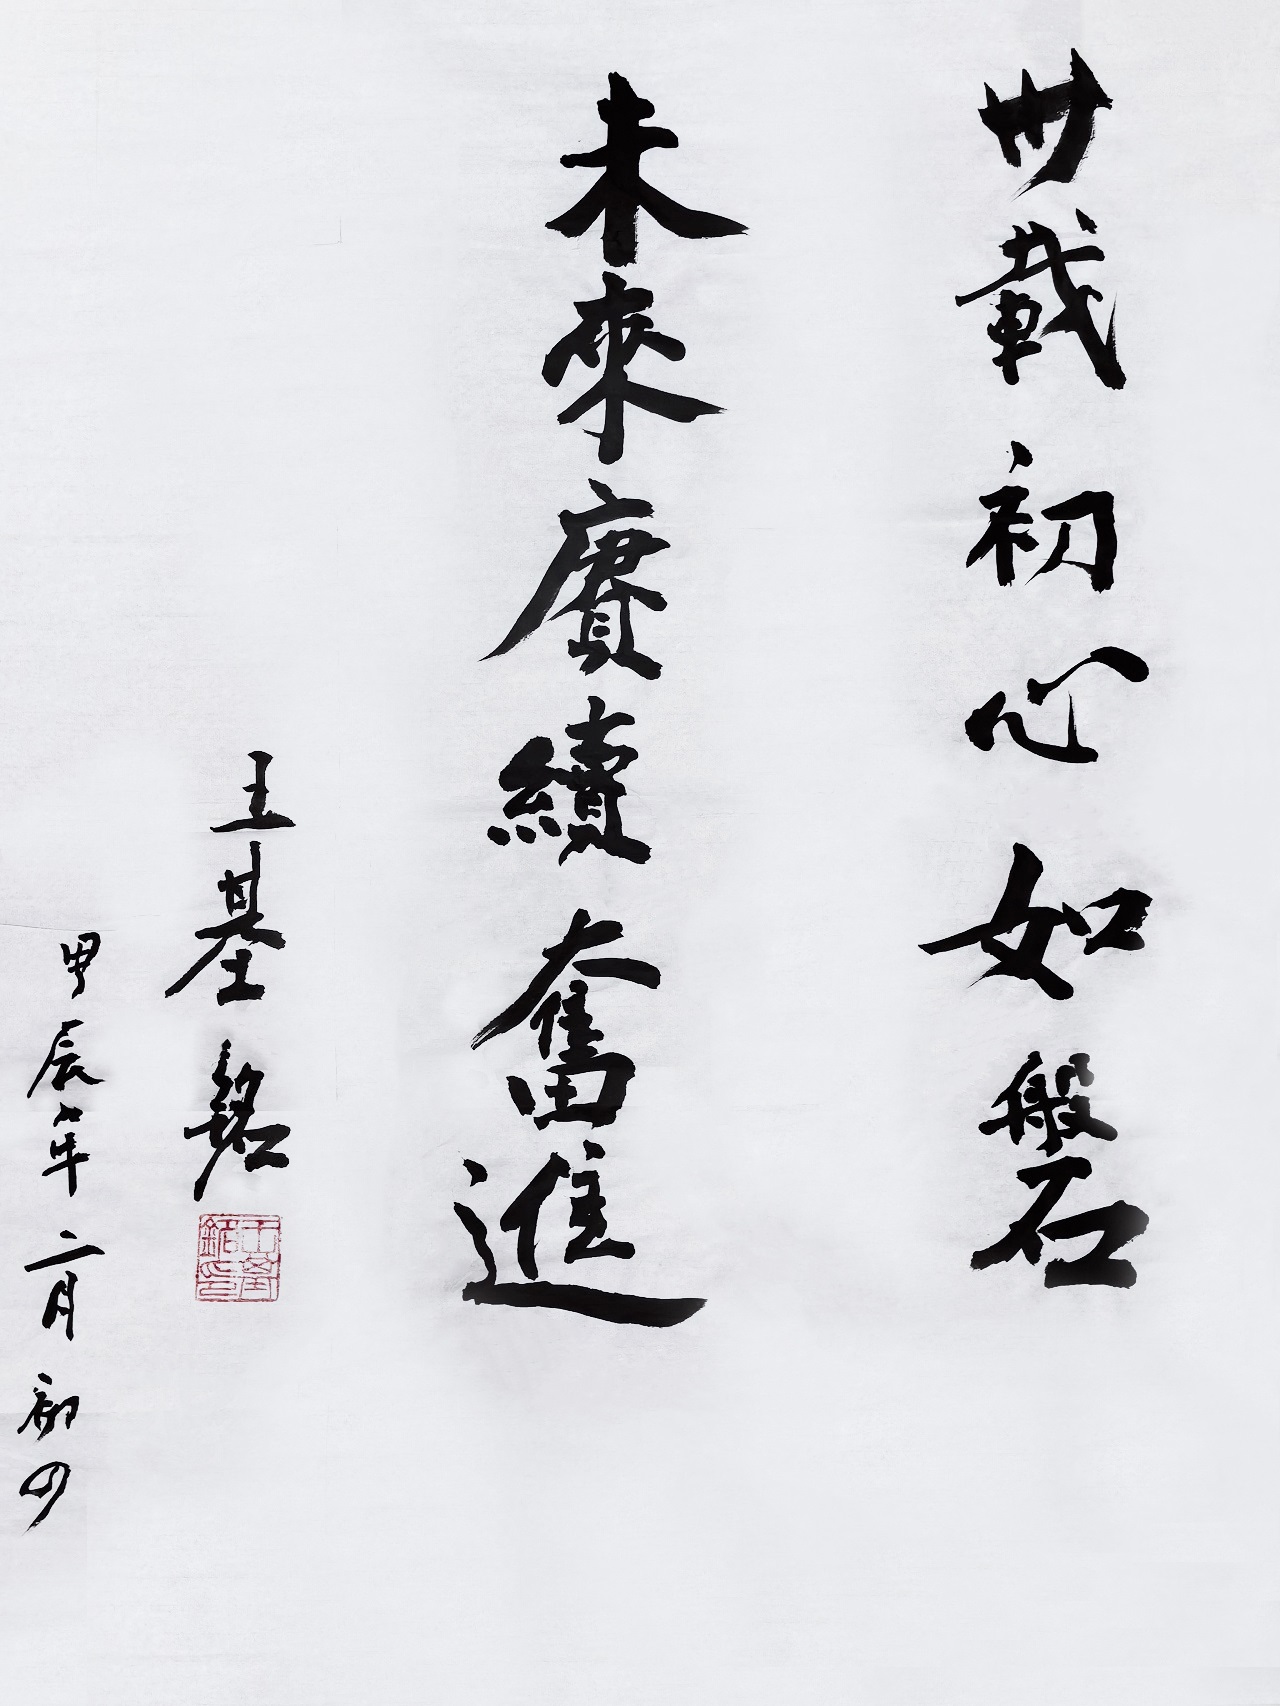 卅載初心如磐
未來賡續奮進
王基銘
王基銘印
甲辰年二月初四